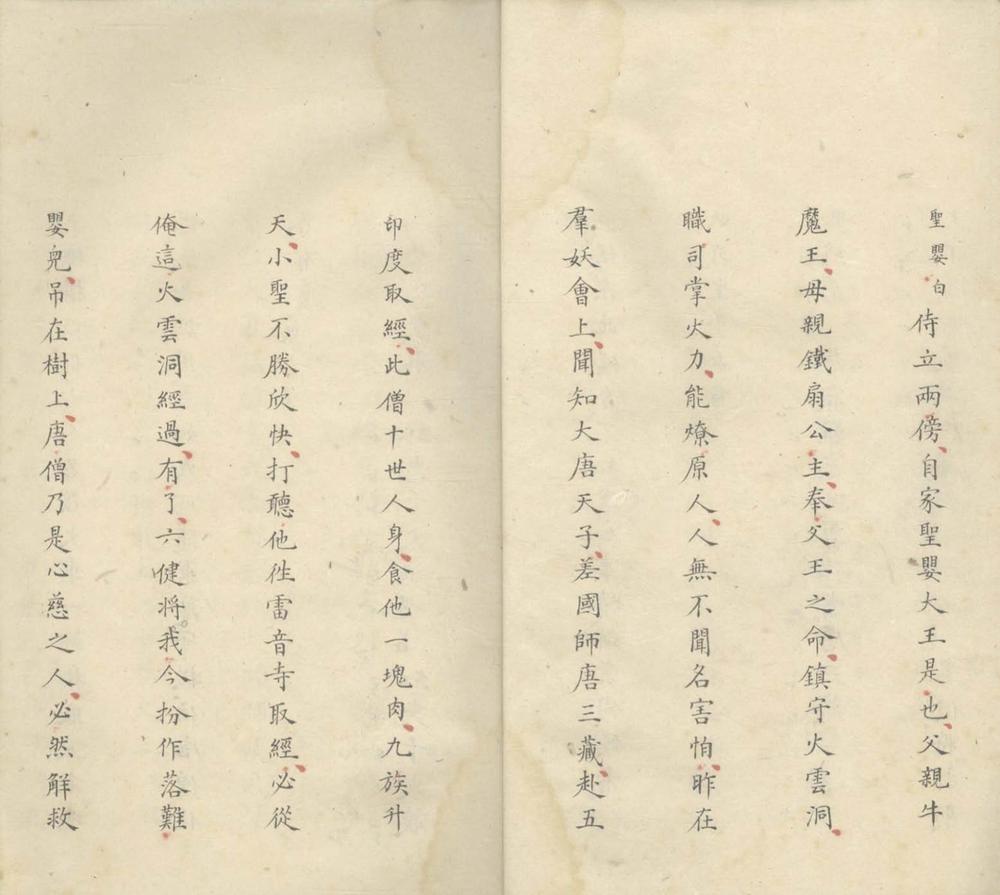 聖嬰白侍立兩傍、自家聖嬰大王是也、父親牛
魔王、母親鐵扇公主、奉父王之命、鎮守火雲洞、
職司掌火力、能燎原人、人無不聞名害怕、昨在
羣妖會上、聞知大唐天子、差國師唐三藏、赴五
印度取經、此僧十世人身、食他一塊肉、九族升
天、小聖不勝欣快、打聽他徃雷音寺取經、必從
俺這火雲洞經過、有了、六健将我今扮作落難
嬰兒、吊在樹上、唐僧乃是心慈之人、必然解救